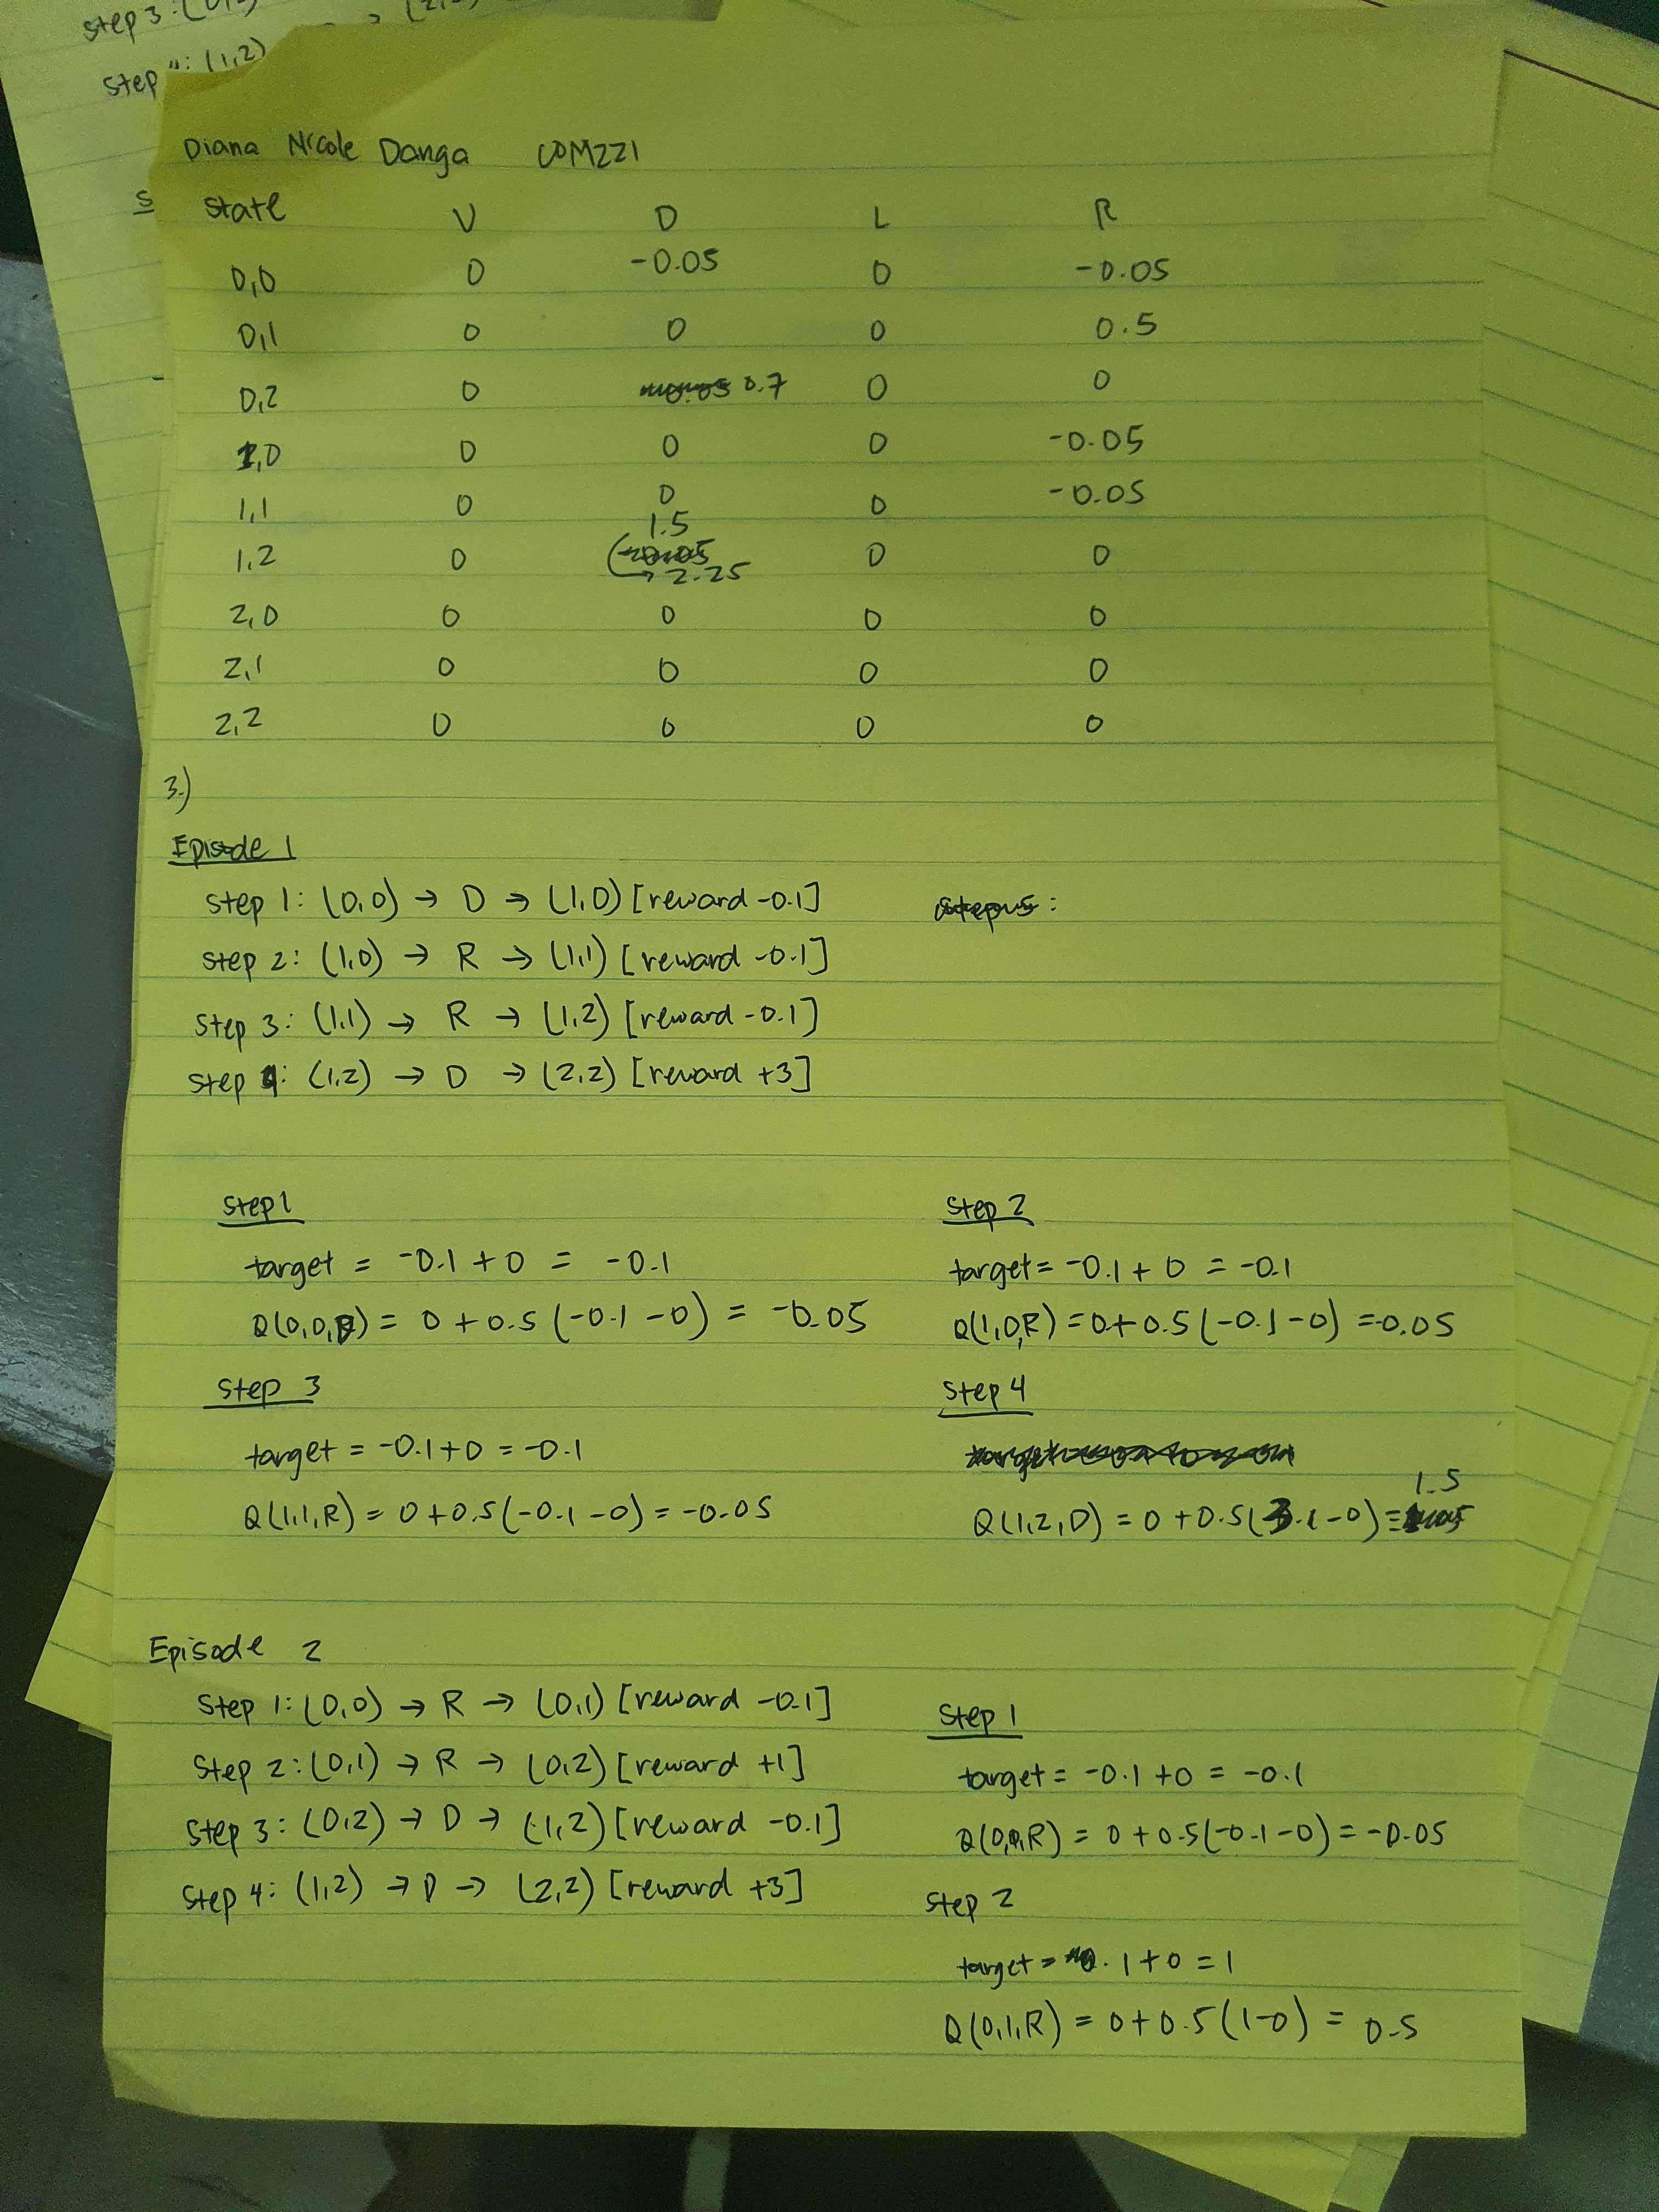 step 3: (0,2)
step 4: (1,2)
Diana Nicole Danga COM221
State U D L R
0,0 0 -0.05 0 -0.05
0,1 0 0 0 0.5
0,2 0 0.7 0 0
1,0 0 0 0 -0.05
1,1 0 0 0 -0.05
1.5
1,2 0 -0.05 0 0
→ 2.25
2,0 0 0 0 0
2,1 0 0 0 0
2,2 0 0 0 0
3.)
Episode 1
step 1: (0,0) → D → (1,0) [reward -0.1] step 5:
step 2: (1,0) → R → (1,1) [reward -0.1]
step 3: (1,1) → R → (1,2) [reward -0.1]
step 4: (1,2) → D → (2,2) [reward +3]
Step 1
target = -0.1 + 0 = -0.1
Q(0,0,D) = 0 + 0.5 (-0.1 - 0) = -0.05
Step 2
target = -0.1 + 0 = -0.1
Q(1,0,R) = 0 + 0.5 (-0.1 - 0) = -0.05
Step 3
target = -0.1 + 0 = -0.1
Q(1,1,R) = 0 + 0.5 (-0.1 - 0) = -0.05
Step 4
1.5
Q(1,2,D) = 0 + 0.5 (3.1 - 0) =
Episode 2
Step 1: (0,0) → R → (0,1) [reward -0.1]
Step 2: (0,1) → R → (0,2) [reward +1]
Step 3: (0,2) → D → (1,2) [reward -0.1]
Step 4: (1,2) → D → (2,2) [reward +3]
Step 1
target = -0.1 + 0 = -0.1
Q(0,0,R) = 0 + 0.5 (-0.1 - 0) = -0.05
Step 2
target = 1 + 0 = 1
Q(0,1,R) = 0 + 0.5 (1 - 0) = 0.5